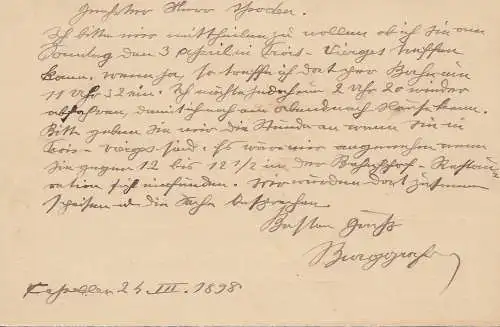 Geehrter Herr
Ich bitte mir mittheilen zu wollen ob ich Sie am
Sonntag den 3 April in Trois-Vierges treffen
kann. wenn ja, so treffe ich dort per Bahn um
11 Uhr 52 ein. Ich möchte jedoch um 2 Uhr 20 wieder
abfahren, damit ich noch am abend nach Hause kann.
Bitte geben Sie mir die Stunde an wann Sie in
Trois-vierges sind. Es wäre mir angenehm wenn
Sie gegen 12 bis 12 1/2 in der Bahnhof-Restau-
ration sich einfinden. wir würden dort zusammen
speisen u. die Sache besprechen.
Besten Gruß
Burggraf
24 III. 1898